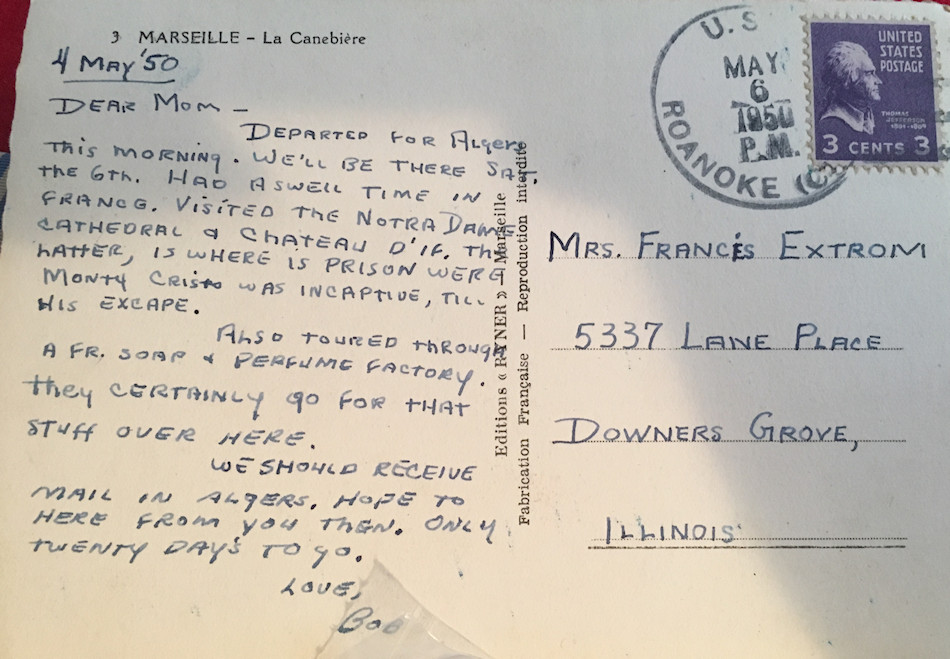 3 MARSEILLE – La Canebière
4 MAY '50
DEAR MOM –
DEPARTED FOR Algers
this MORNING. WE'LL BE THERE SAT.
the 6TH. HAD A SWELL TIME IN
FRANCE. VISITED THE NOTRA DAME
CATHEDRAL & CHATEAU D'IF. THE
LATTER, IS WHERE IS PRISON WERE
MONTY CRISTO WAS INCAPTIVE, TILL
HIS EXCAPE.
ALSO TOURED THROUGH
A FR. SOAP & PERFUME FACTORY.
they CERTAINLY GO FOR THAT
STUFF OVER HERE.
WE SHOULD RECEIVE
MAIL IN ALGERS. HOPE TO
HERE FROM YOU THEN. ONLY
TWENTY DAY'S TO GO.
LOVE,
Bob
Editions « RAYNER » – Marseille
Fabrication Française — Reproduction interdite
U.S
MAY
6
1950
P.M.
ROANOKE
UNITED
STATES
POSTAGE
THOMAS
JEFFERSON
1801-1809
3 CENTS 3
MRS. FRANCES EXTROM
5337 LANE PLACE
DOWNERS GROVE,
ILLINOIS